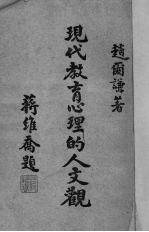 趙爾謙著
現代教育心理的人文觀
蔣維喬題